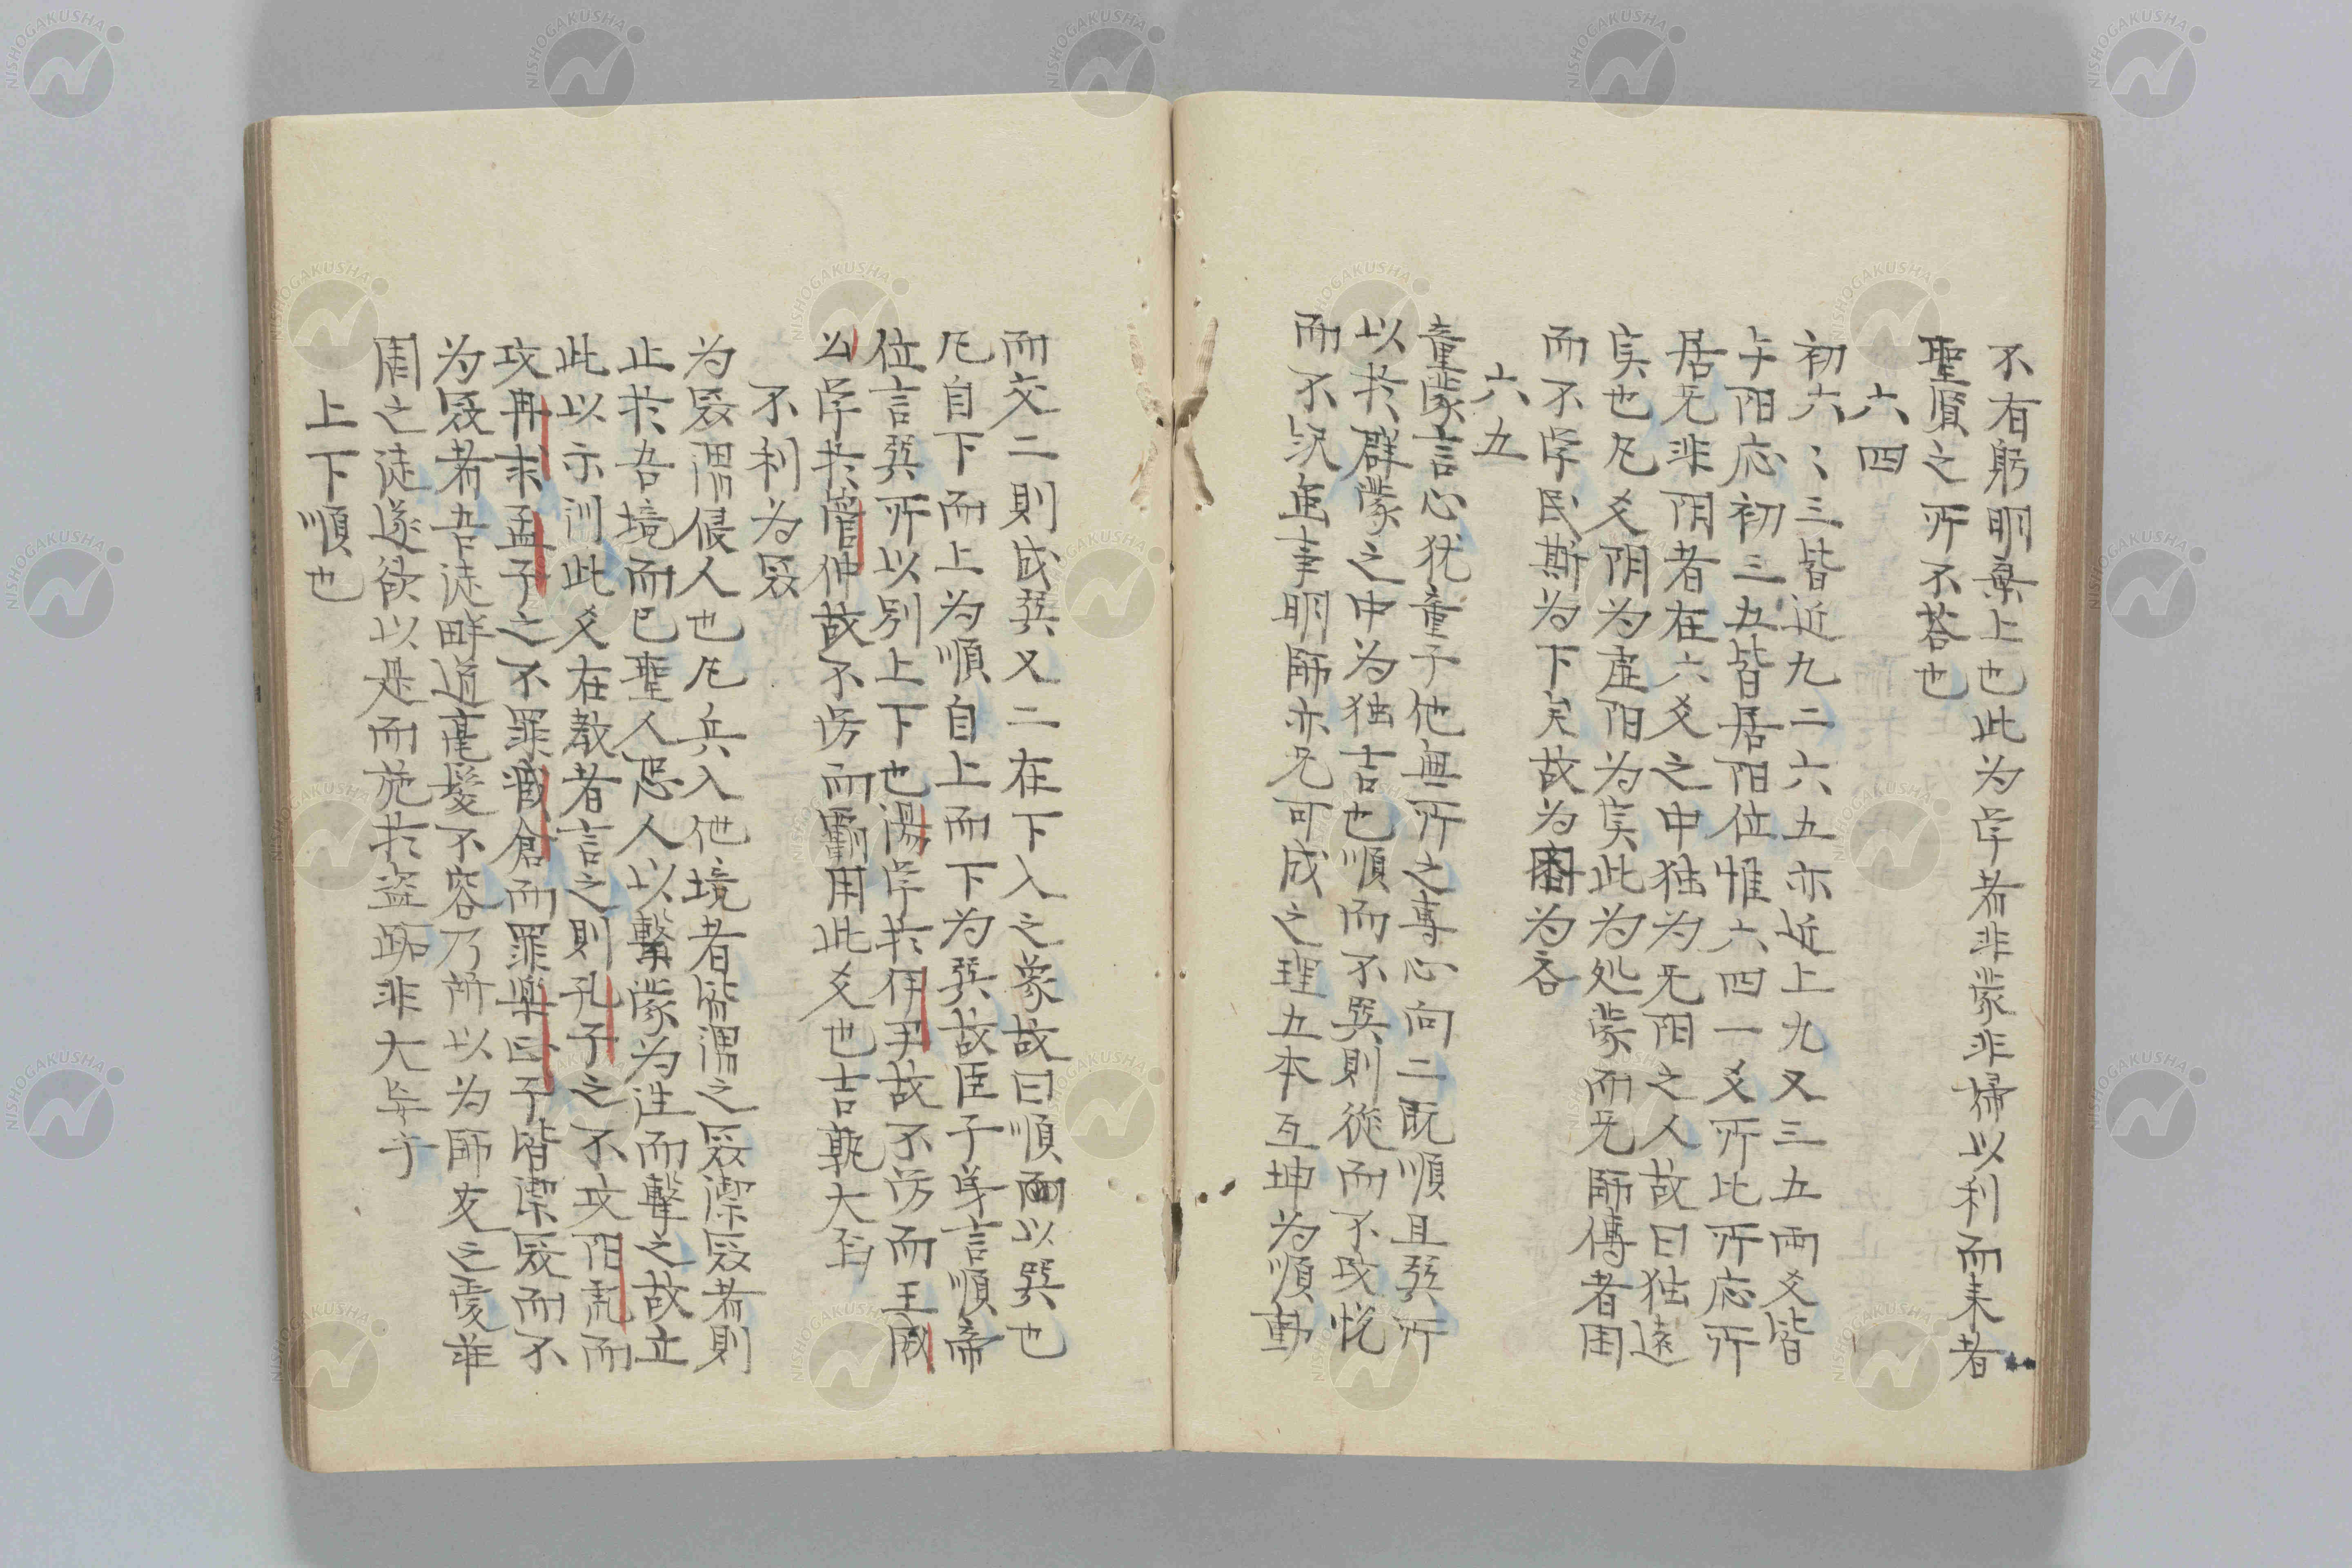 不有躬明棄上也此为孛者非蒙非婦以利而来者
聖賢之所不荅也
六四
初六〻三皆近九二六五亦近上九又三五両爻皆
与阳応初三五皆居阳位惟六四一爻所比所応所
居无非阴者在六爻之中独为无阳之人故曰独遠
実也凢爻阴为虚阳为実此为処蒙而无師傅者困
而不孛民斯为下矣故为困为吝
六五
童蒙言心犹童子他無所之専心向二既順且巽所
以扵群蒙之中为独吉也順而不巽則從而不改悦
而不繹無事明師亦无可成之理五本互坤为順動
而交二則成巽又二在下入之象故曰順而以巽也
凢自下而上为順自上而下为巽故臣子身言順帝
位言巽所以别上下也湯孛扵伊尹故不労而王威
公孛扵管仲故不労而霸用此爻也吉孰大焉
不利为寇
为寇謂侵人也凢兵入他境者皆謂之寇禦寇者則
止扵吾境而已聖人恐人以擊蒙为迋而擊之故立
此以示训此爻在教者言之則孔子之不攻阳乕而
攻冉求孟子之不罪臧倉而罪樂正子皆禦寇而不
为寇者吾徒畔道毫髮不容乃所以为師友之愛非
周之徒遂欲以是而施扵盗跖非大㐳乎
上下順也
NISHOGAKUSHA